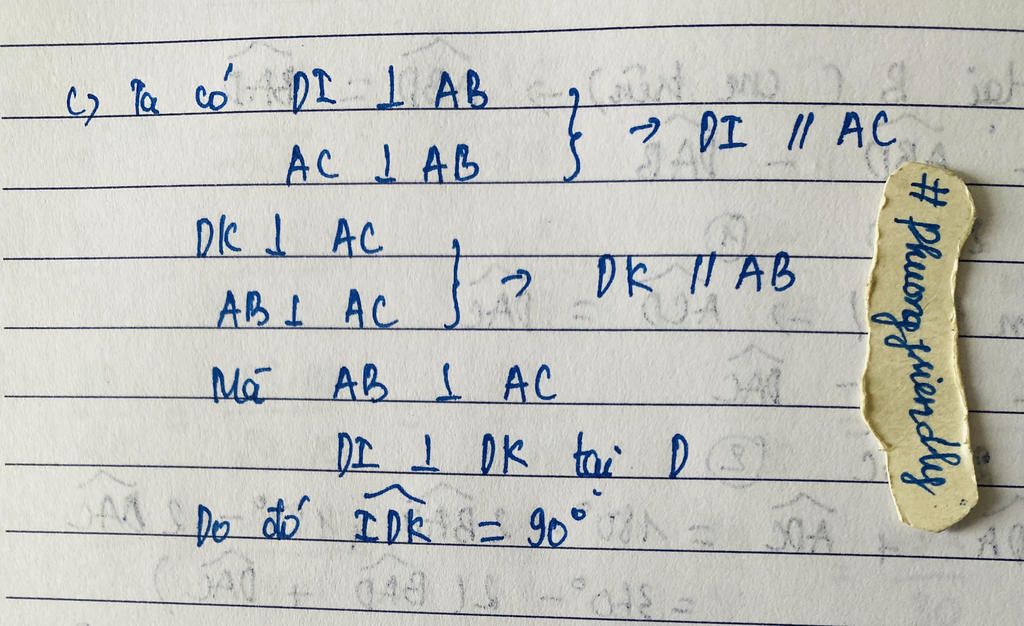 c) Ta có DI ⊥ AB
AC ⊥ AB
} → DI // AC
DK ⊥ AC
AB ⊥ AC
} → DK // AB
Mà AB ⊥ AC
DI ⊥ DK tại D
Do đó \widehat{IDK} = 90°
# phuongfriendly